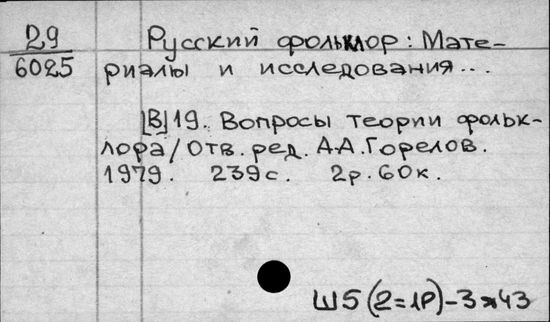 29
6025
Русский фольклор: Мате-
риалы и исследования...
[В]19. Вопросы теории фольк-
лора/Отв. ред. А.А. Горелов.
1979. 239с. 2р. 60к.
Ш5(2=1Р)-3я43